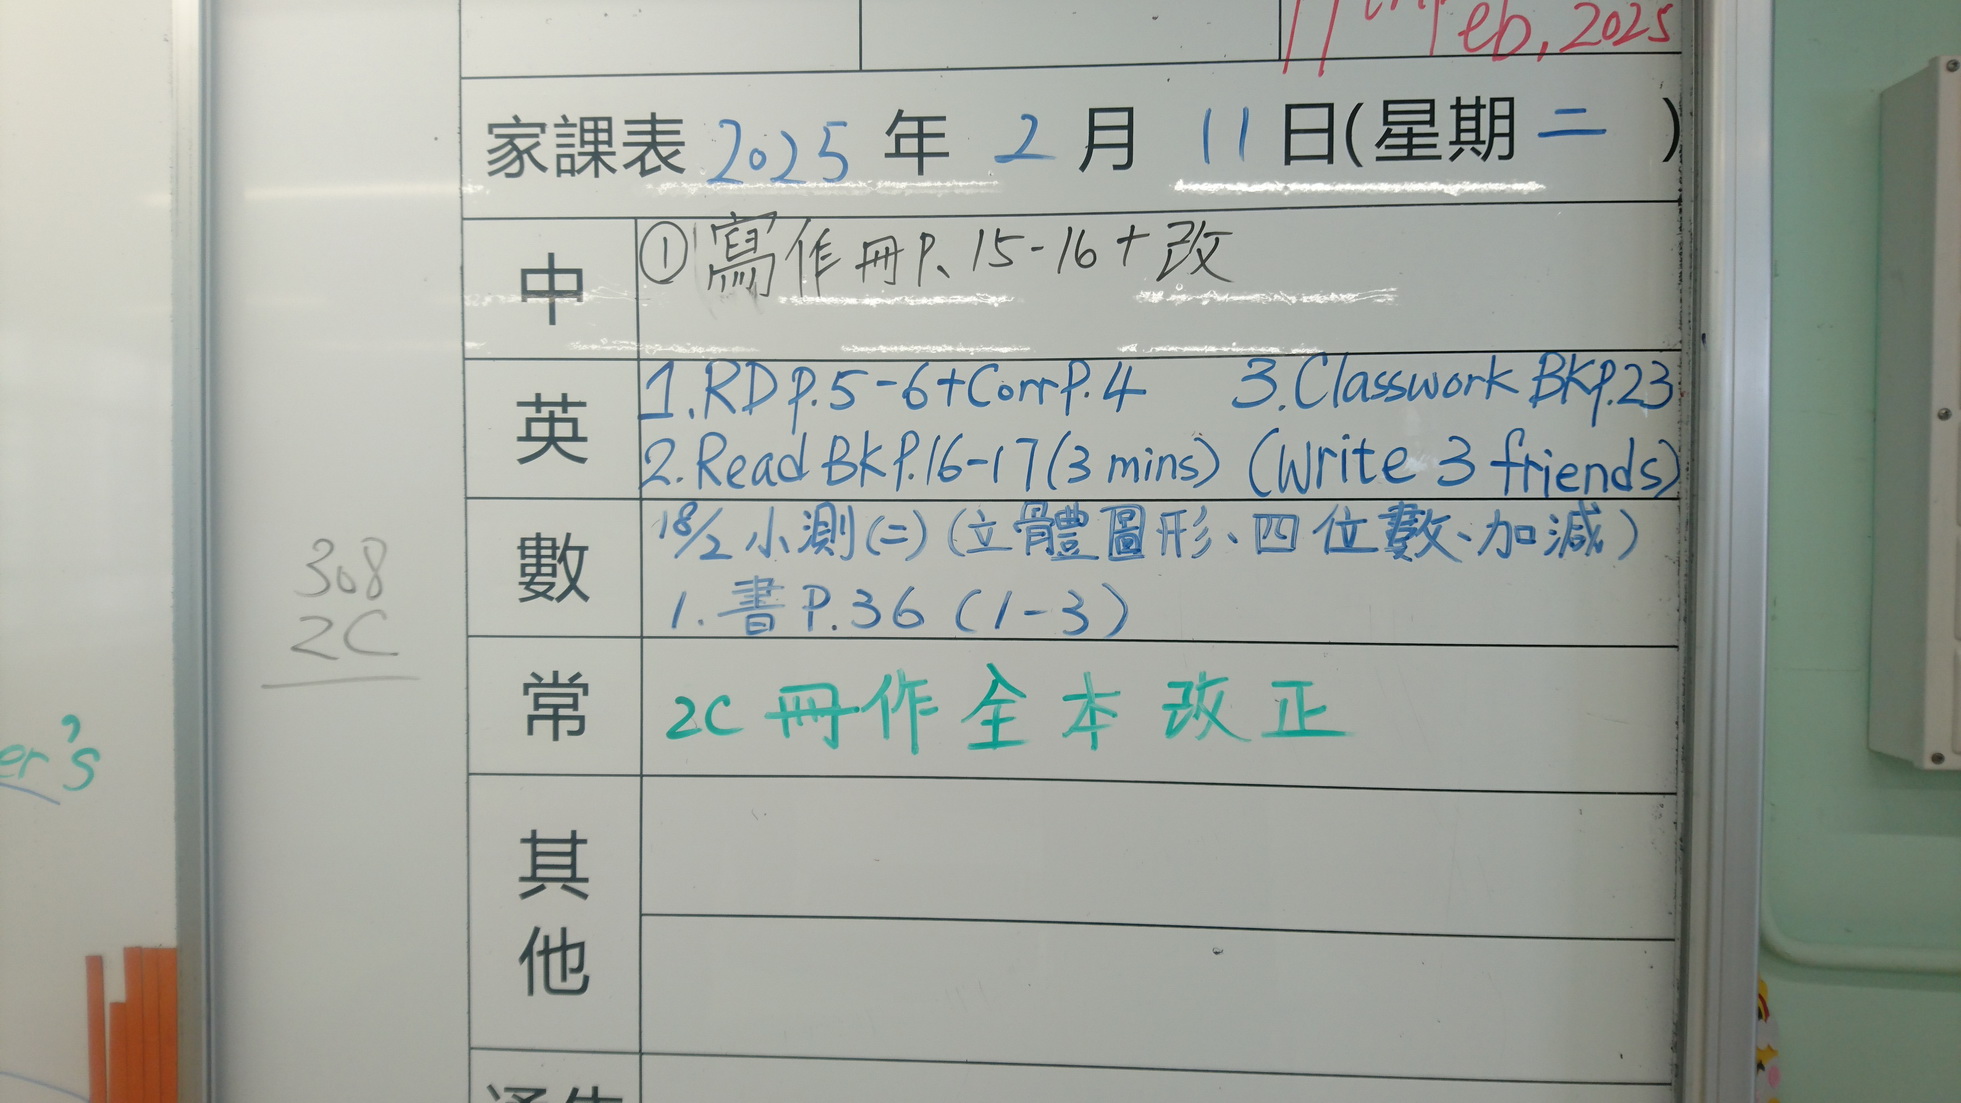 Feb, 2025
家課表 2025 年 2 月 11 日(星期 二 )
中
① 寫作冊P. 15-16 + 改
英
1. RD P.5-6 + Corr P.4 3. Classwork BK P.23
2. Read BK P.16-17 (3 mins) (Write 3 friends)
數
18/2 小測(二) (立體圖形、四位數、加減)
1. 書 P.36 (1-3)
常
2C 冊作全本改正
其他
308
2C
er's